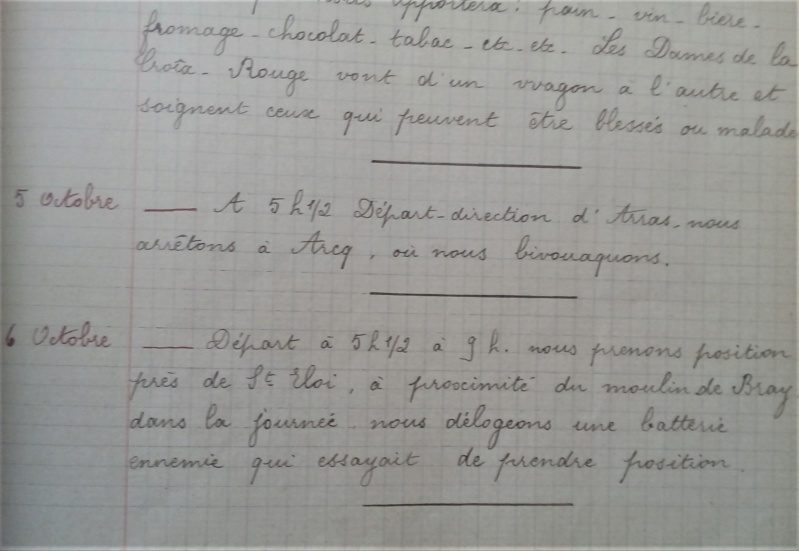 apportera : pain - vin - bière -
fromage - chocolat - tabac - etc - etc - Les Dames de la
Croix - Rouge vont d'un wagon à l'autre et
soignent ceux qui peuvent être blessés ou malade
5 Octobre — A 5 h 1/2 Départ - direction d'Arras, nous
arrêtons à Arcq, où nous bivouaquons.
6 Octobre — Départ à 5 h 1/2 à 9 h. nous prenons position
près de St Eloi, à proximité du moulin de Bray
dans la journée nous délogeons une batterie
ennemie qui essayait de prendre position.